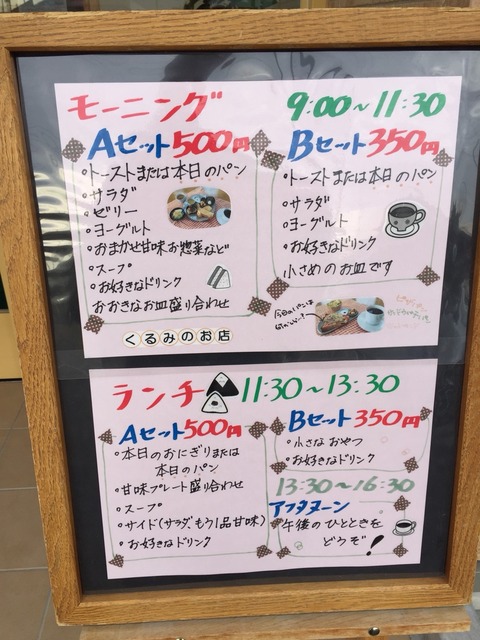 モーニング 9:00~11:30
Aセット500円
・トーストまたは本日のパン
・サラダ
・ゼリー
・ヨーグルト
・おまかせ甘味お惣菜など
・スープ
・お好きなドリンク
おおきなお皿盛り合わせ
Bセット350円
・トーストまたは本日のパン
・サラダ
・ヨーグルト
・お好きなドリンク
小さめのお皿です
今日のパンは
くるみのお店
ランチ 11:30~13:30
Aセット500円
・本日のおにぎりまたは
本日のパン
・甘味プレート盛り合わせ
・スープ
・サイド(サラダもう1品甘味)
・お好きなドリンク
Bセット350円
・小さなおやつ
・お好きなドリンク
13:30~16:30
アフタヌーン
午後のひとときを
どうぞ!